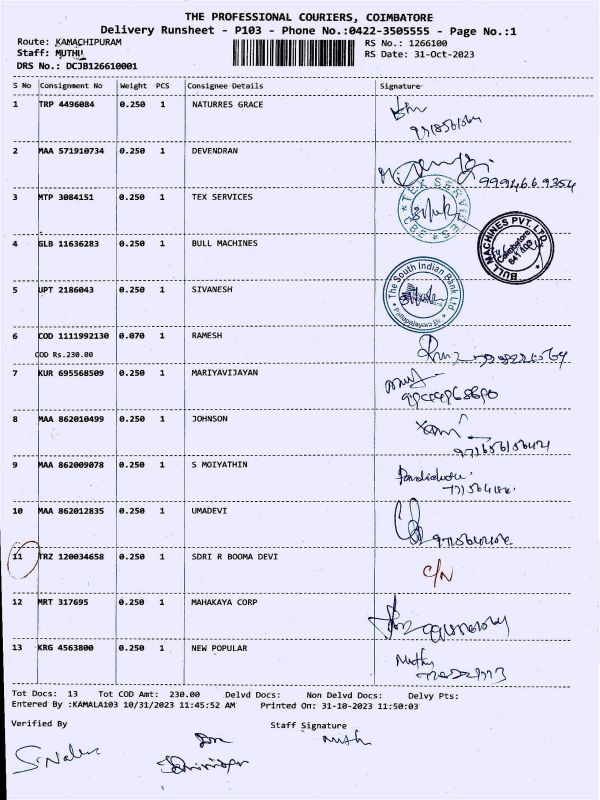 THE PROFESSIONAL COURIERS, COIMBATORE
Delivery Runsheet - P103 - Phone No.:0422-3505555 - Page No.:1
Route: KAMACHIPURAM RS No.: 1266100
Staff: MUTHU RS Date: 31-Oct-2023
DRS No.: DCJB126610001
S No Consignment No Weight PCS Consignee Details Signature
1 TRP 4496084 0.250 1 NATURRES GRACE
2 MAA 571910734 0.250 1 DEVENDRAN
9994669354
3 MTP 3084151 0.250 1 TEX SERVICES
TEX SERVICES CBE
4 GLB 11636283 0.250 1 BULL MACHINES
BULL MACHINES PVT. LTD. Coimbatore
5 UPT 2186043 0.250 1 SIVANESH
The South Indian Bank Ltd
6 COD 1111992130 0.070 1 RAMESH
COD Rs.230.00
7 KUR 695568509 0.250 1 MARIYAVIJAYAN
8 MAA 862010499 0.250 1 JOHNSON
9 MAA 862009078 0.250 1 S MOIYATHIN
10 MAA 862012835 0.250 1 UMADEVI
11 TRZ 120034658 0.250 1 SDRI R BOOMA DEVI
C/N
12 MRT 317695 0.250 1 MAHAKAYA CORP
13 KRG 4563800 0.250 1 NEW POPULAR
Muthu
Tot Docs: 13 Tot COD Amt: 230.00 Delvd Docs: Non Delvd Docs: Delvy Pts:
Entered By :KAMALA103 10/31/2023 11:45:52 AM Printed On: 31-10-2023 11:50:03
Verified By Staff Signature